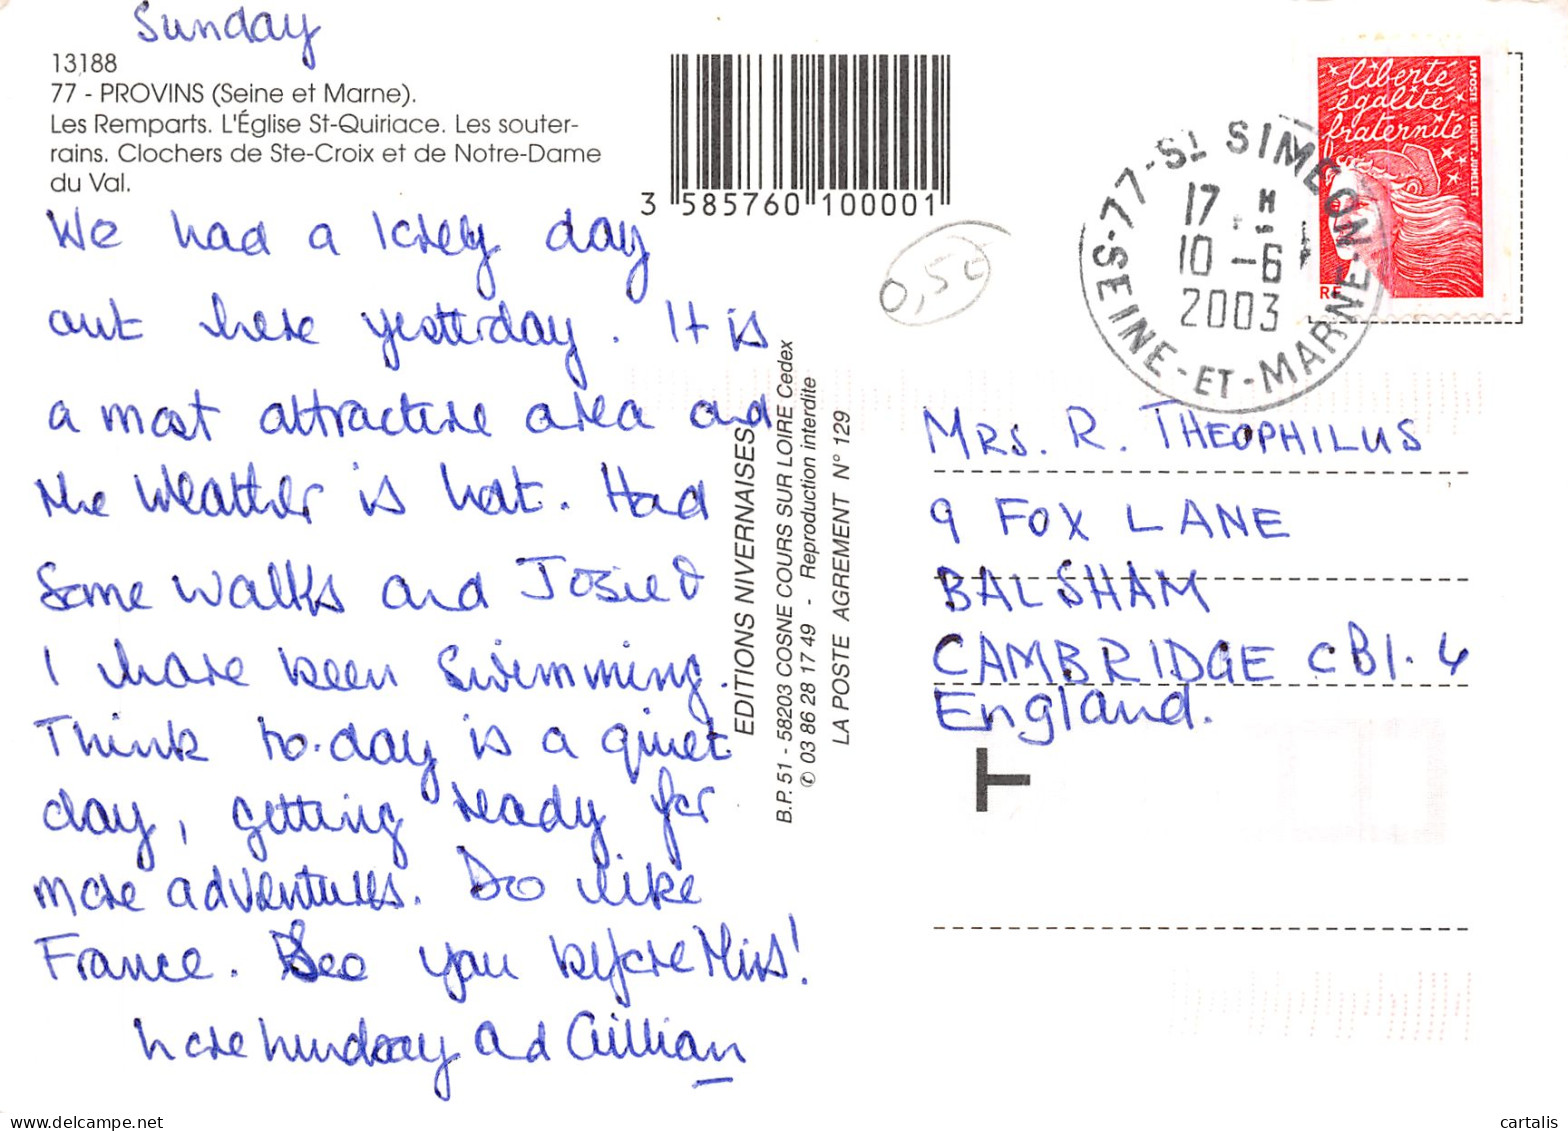 Sunday
13188
77 - PROVINS (Seine et Marne).
Les Remparts. L'Église St-Quiriace. Les souter-
rains. Clochers de Ste-Croix et de Notre-Dame
du Val.
We had a lovely day
out here yesterday. It is
a most attractive area and
the weather is hot. Had
some walks and Josie &
I have been swimming.
Think to-day is a quiet
day, getting ready for
more adventures. Do like
France. See you before this!
love and Gillian
3 585760 100001
0,50
EDITIONS NIVERNAISES
B.P. 51 - 58203 COSNE COURS SUR LOIRE Cedex
✆ 03 86 28 17 49 - Reproduction interdite
LA POSTE AGREMENT N° 129
77-St SIMEON
17 H
10 -6
2003
SEINE-ET-MARNE
liberté
égalité
fraternité
LAPOSTE LUQUET.JUMELET
RF
MRS. R. THEOPHILUS
9 FOX LANE
BALSHAM
CAMBRIDGE CB1. 4
England.
T
cartalis